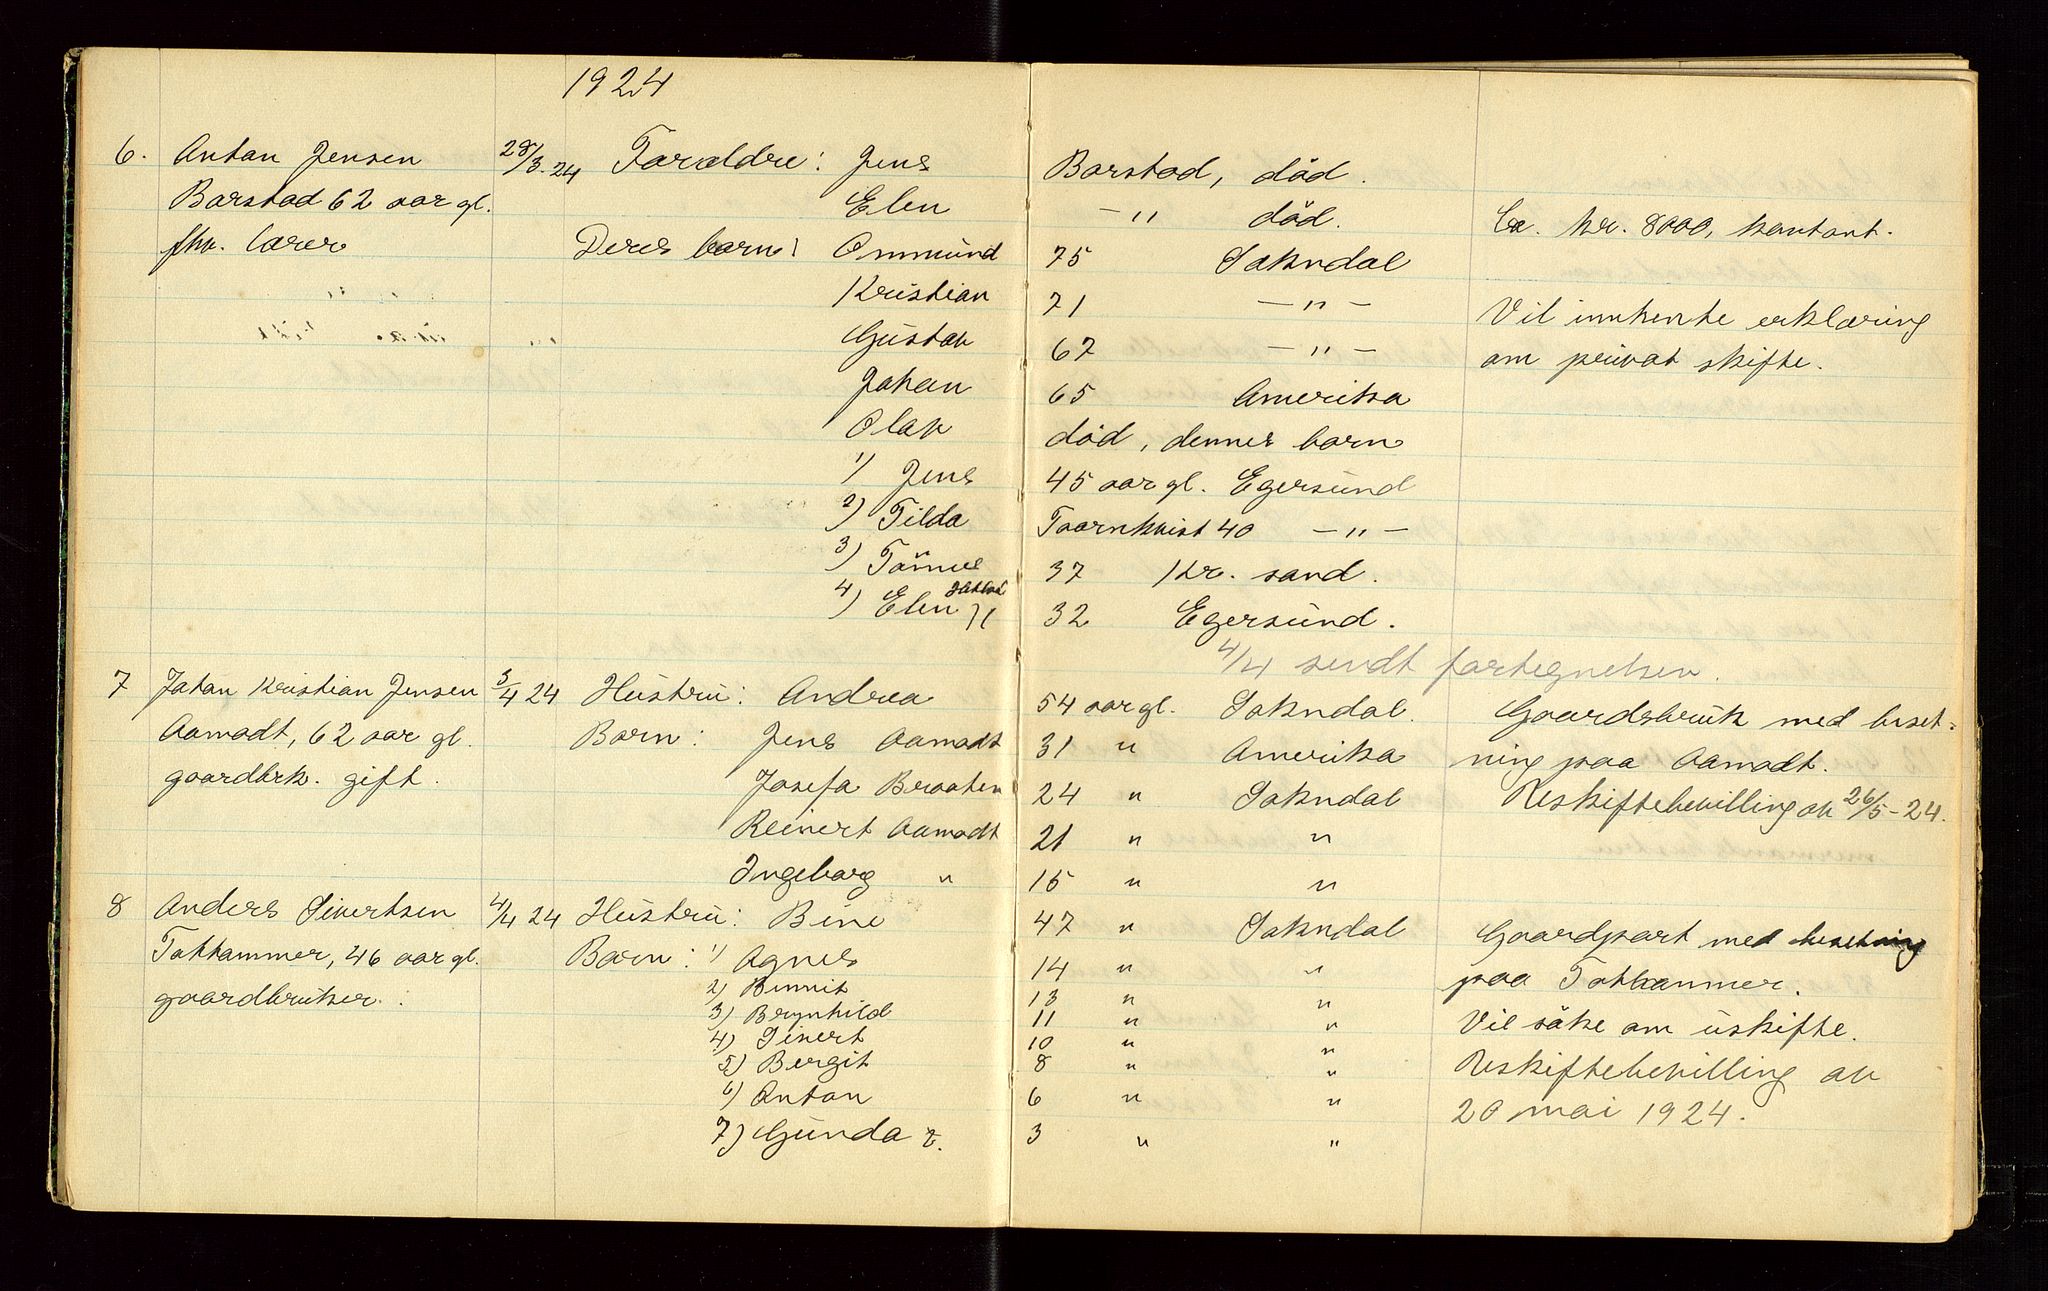 1924
6. Anton Jensen 28/3-24 Foraldre: Jens Barstad, död.
Barstad 62 aar gl. Elen -"- död. Ca. kr. 8000, kontant.
fhv. lærer Deres barn: Ommund 75 Sokndal
Kristian 71 -"- Vil innhente erklæring
Gustav 67 -"- om privat skifte.
Johan 65 Amerika
Olav död, dennes barn
1) Jens 45 aar gl. Egersund
2) Tilda Toornkvist 40 -"-
3) Tönnes 37 Kr. sand.
4) Elen 32 Egersund.
4/4 sendt fortegnelsen.
7 Johan Kristian Jensen 3/4 24 Hustru: Andrea 54 aar gl. Sokndal. Gaardsbruk med beset-
Aamodt, 62 aar gl. Barn: Jens Aamodt 31 " Amerika ning paa Aamodt.
gaardbrk. gift. Josefa Braaten 24 " Sokndal Uskiftebevilling av 26/5-24.
Reinert Aamodt 21 " "
Ingeborg " 15 " "
8 Anders Sivertsen 4/4 24 Hustru: Bine 47 " Sokndal Gaardpart med besetning
Tothammer, 46 aar gl. Barn: 1) Agnes 14 " " paa Tothammer.
gaardbruker. 2) Bennit 13 " "
3) Brynhild 11 " " Vil söke om uskifte.
4) Sivert 10 " "
5) Bergit 8 " " Uskiftebevilling av
6) Anton 6 " " 20 mai 1924.
7) Gunda 3 " "